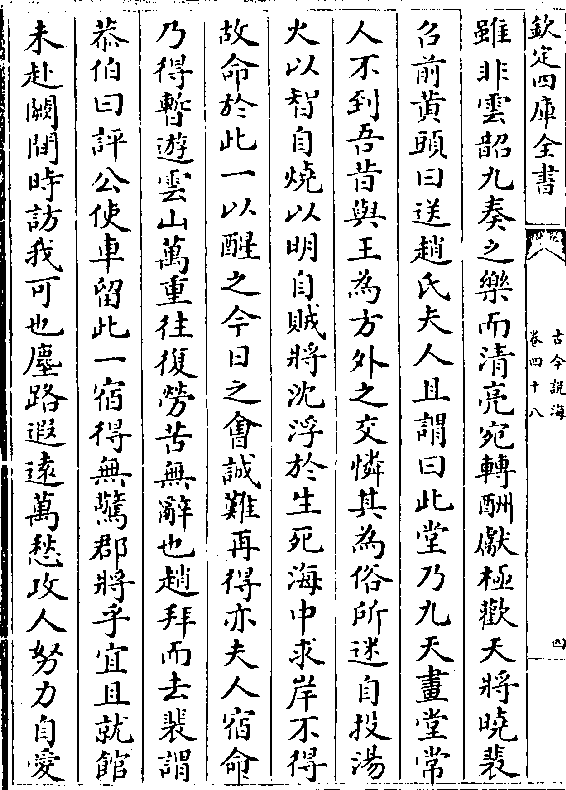 欽定四庫全書
古今説海
卷四十八
四
雖非雲韶九奏之樂而清亮宛轉酬獻極歡天將曉裴
召前黄頭曰送趙氏夫人且謂曰此堂乃九天畫堂常
人不到吾昔與王為方外之交憐其為俗所迷自投湯
火以智自燒以明自賊將沈浮於生死海中求岸不得
故命於此一以醒之今日之會誠難再得亦夫人宿命
乃得暫遊雲山萬重往復勞苦無辭也趙拜而去裴謂
恭伯曰評公使車留此一宿得無驚郡將乎宜且就館
未赴闕閒時訪我可也塵路遐遠萬愁攻人努力自愛